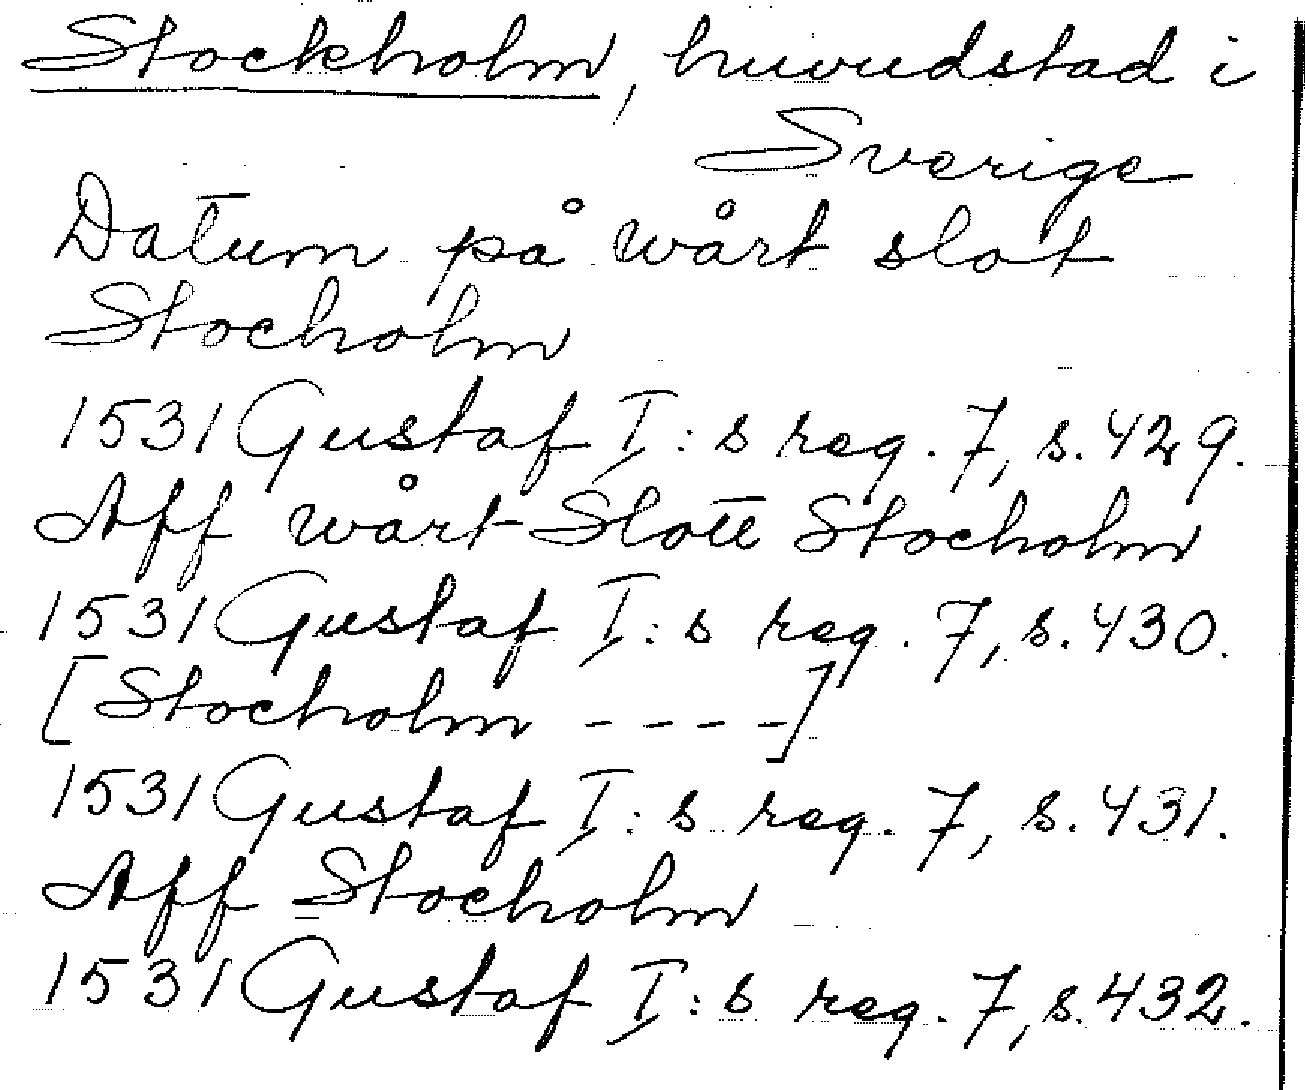 Stockholm, huvudstad i
Sverige
Datum på wårt slot
Stocholm
1531 Gustaf I:s reg. 7, s. 429.
Aff wårt Slott Stocholm
1531 Gustaf I:s reg. 7, s. 430.
[Stocholm - - - -]
1531 Gustaf I:s reg. 7, s. 431.
Aff Stocholm
1531 Gustaf I:s reg. 7, s. 432.